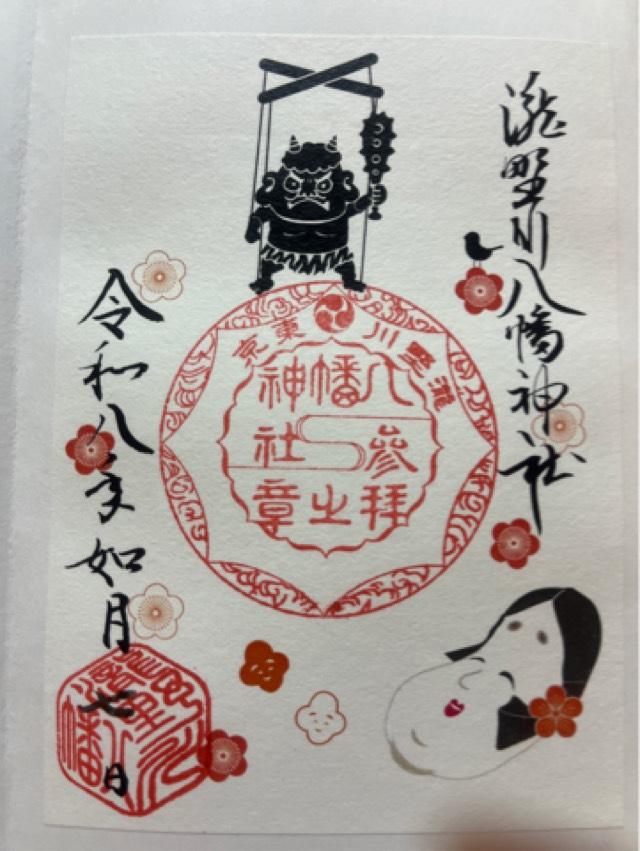 瀧野川八幡神社
東京
瀧野川
八幡神社
参拜之章
令和八年如月七日